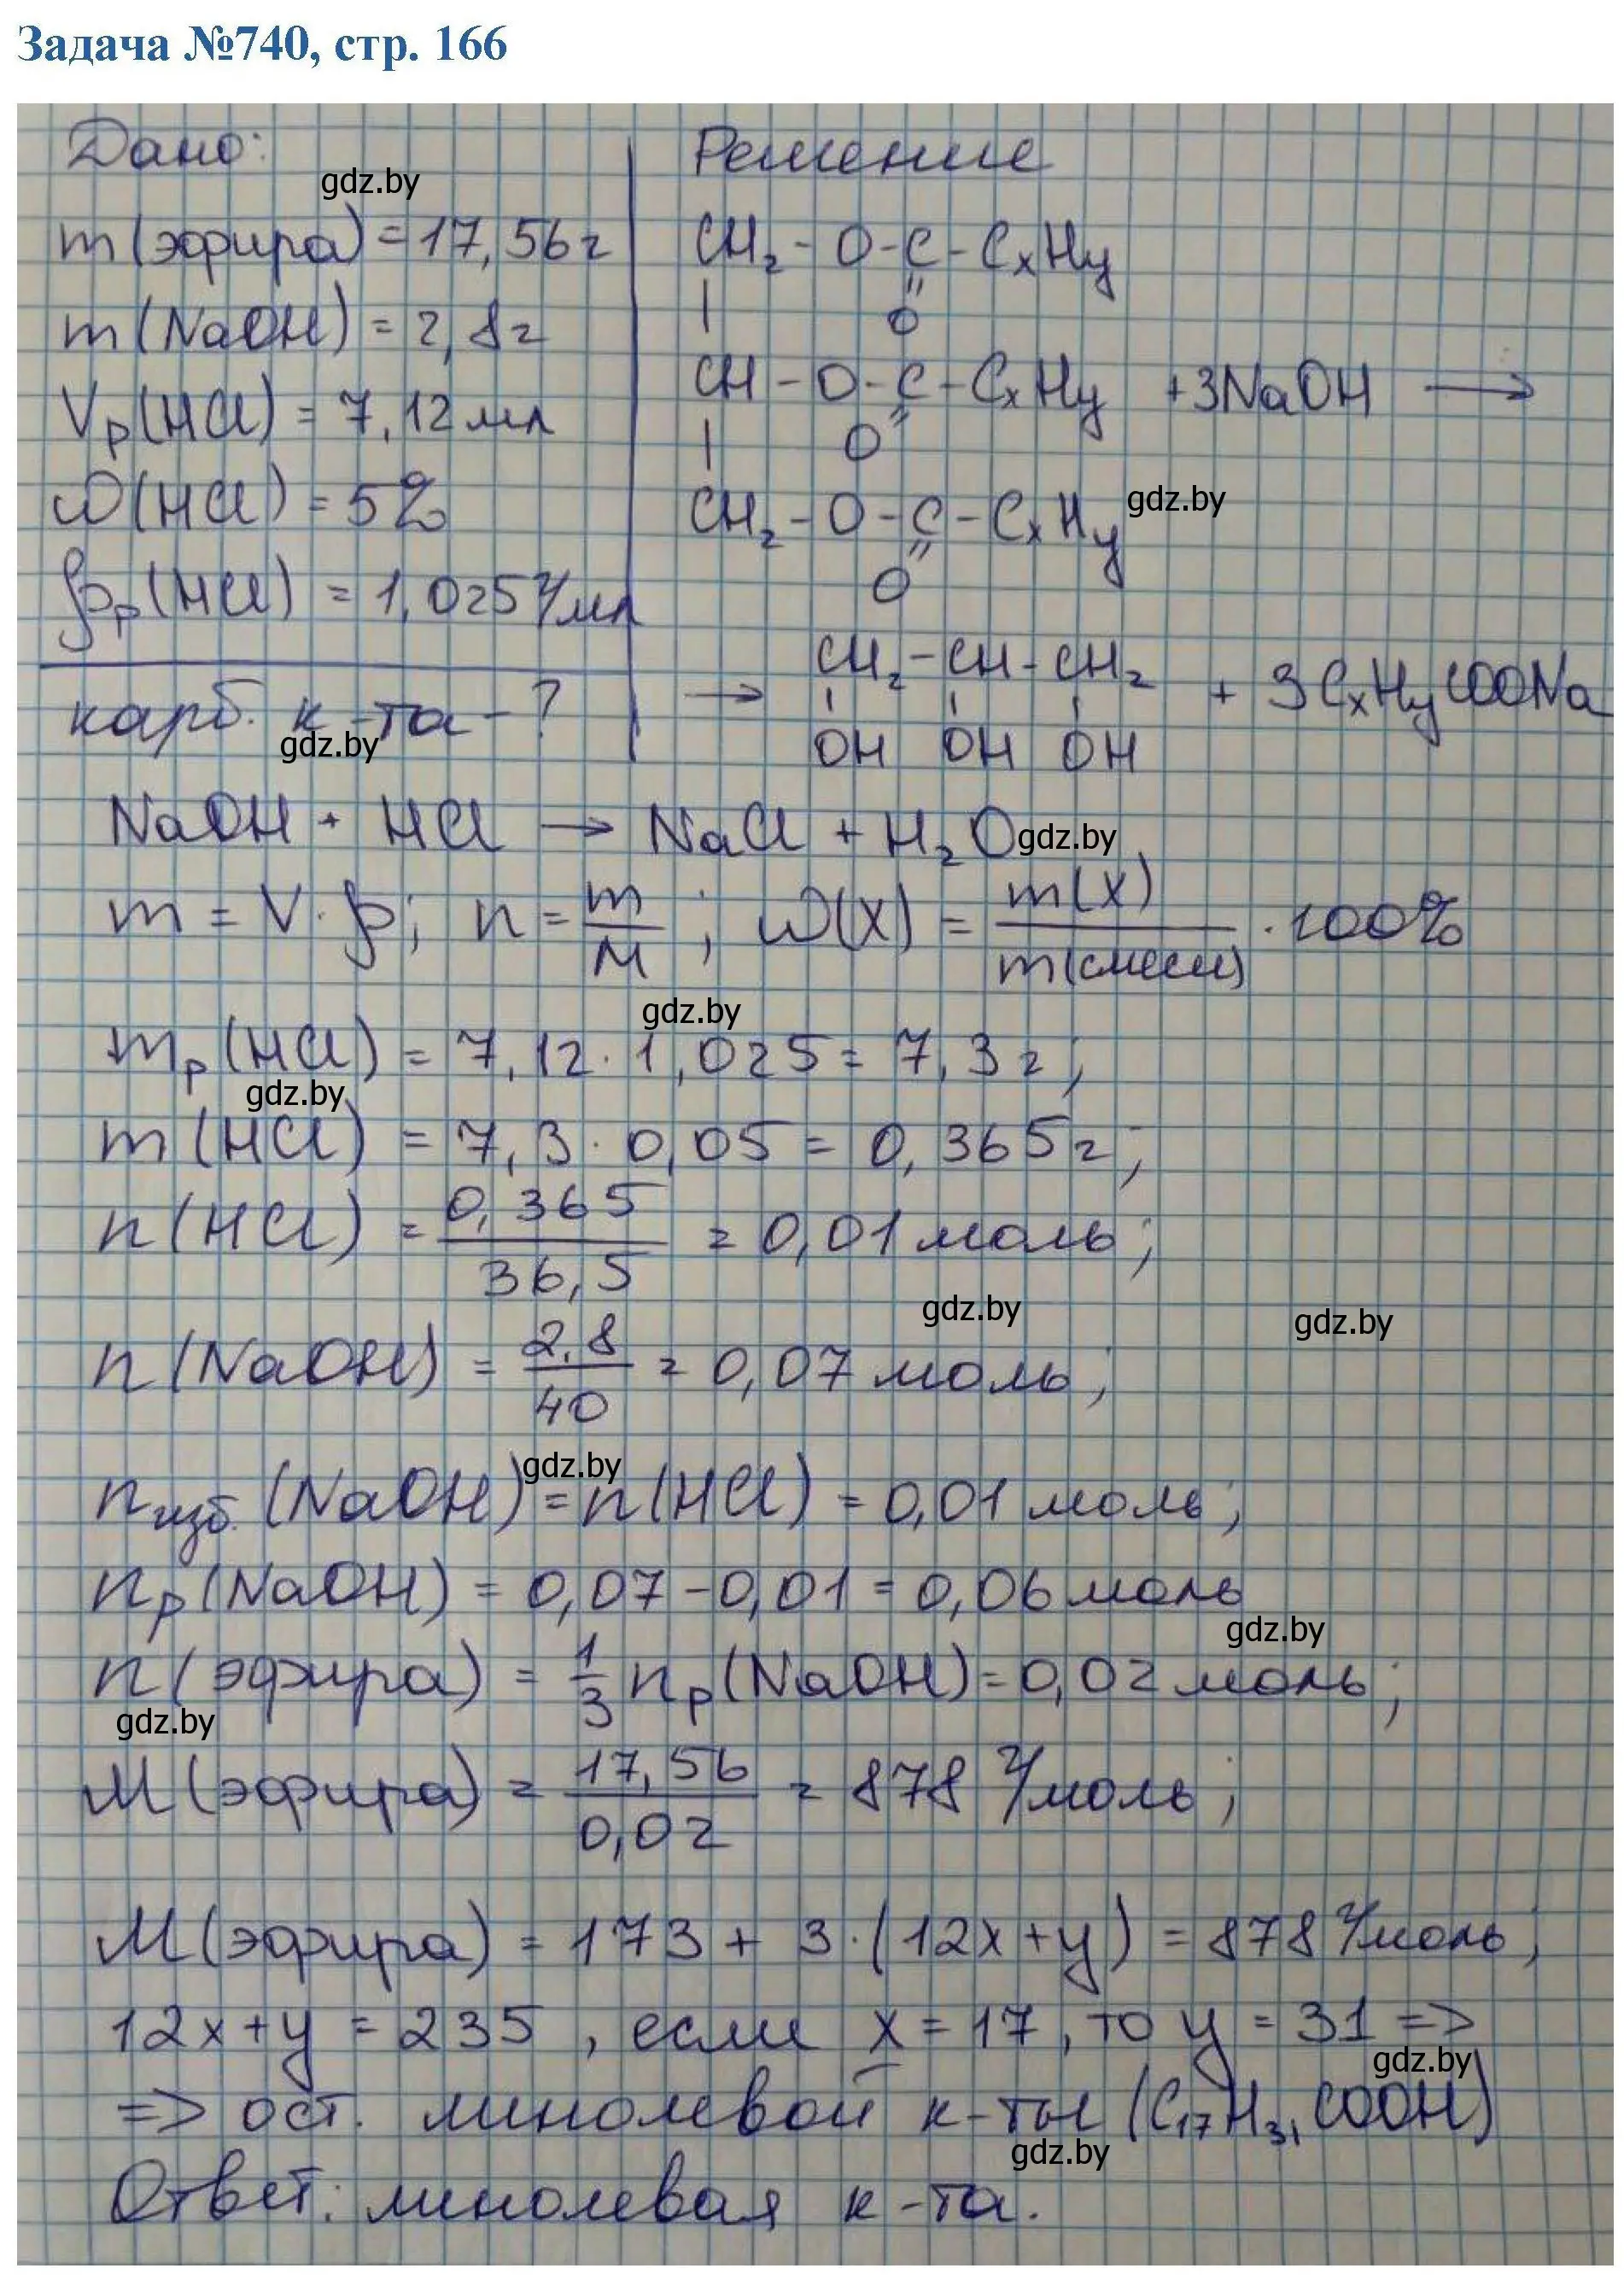 Задача №740, стр. 166
Дано:
m(эфира) = 17,56 г
m(NaOH) = 2,8 г
Vр(HCl) = 7,12 мл
ω(HCl) = 5%
ρр(HCl) = 1,025 г/мл
карб. к-та - ?
Решение
CH₂ - O - C - CxHy
| || O
CH - O - C - CxHy + 3NaOH →
| || O
CH₂ - O - C - CxHy
|| O
→ CH₂ - CH - CH₂ + 3CxHyCOONa
OH OH OH
NaOH + HCl → NaCl + H₂O
m = V · ρ; n = m/M; ω(X) = m(X)/m(смеси) · 100%
mр(HCl) = 7,12 · 1,025 = 7,3 г;
m(HCl) = 7,3 · 0,05 = 0,365 г;
n(HCl) = 0,365/36,5 = 0,01 моль;
n(NaOH) = 2,8/40 = 0,07 моль;
nизб.(NaOH) = n(HCl) = 0,01 моль;
nр(NaOH) = 0,07 - 0,01 = 0,06 моль
n(эфира) = 1/3 nр(NaOH) = 0,02 моль;
M(эфира) = 17,56/0,02 = 878 г/моль;
M(эфира) = 173 + 3 · (12x + y) = 878 г/моль;
12x + y = 235, если x = 17, то y = 31 =>
=> ост. линолевой к-ты (C₁₇H₃₁COOH)
Ответ: линолевая к-та.
gdz.by
gdz.by
gdz.by
gdz.by
gdz.by
gdz.by
gdz.by
gdz.by
gdz.by
gdz.by
gdz.by
gdz.by
gdz.by